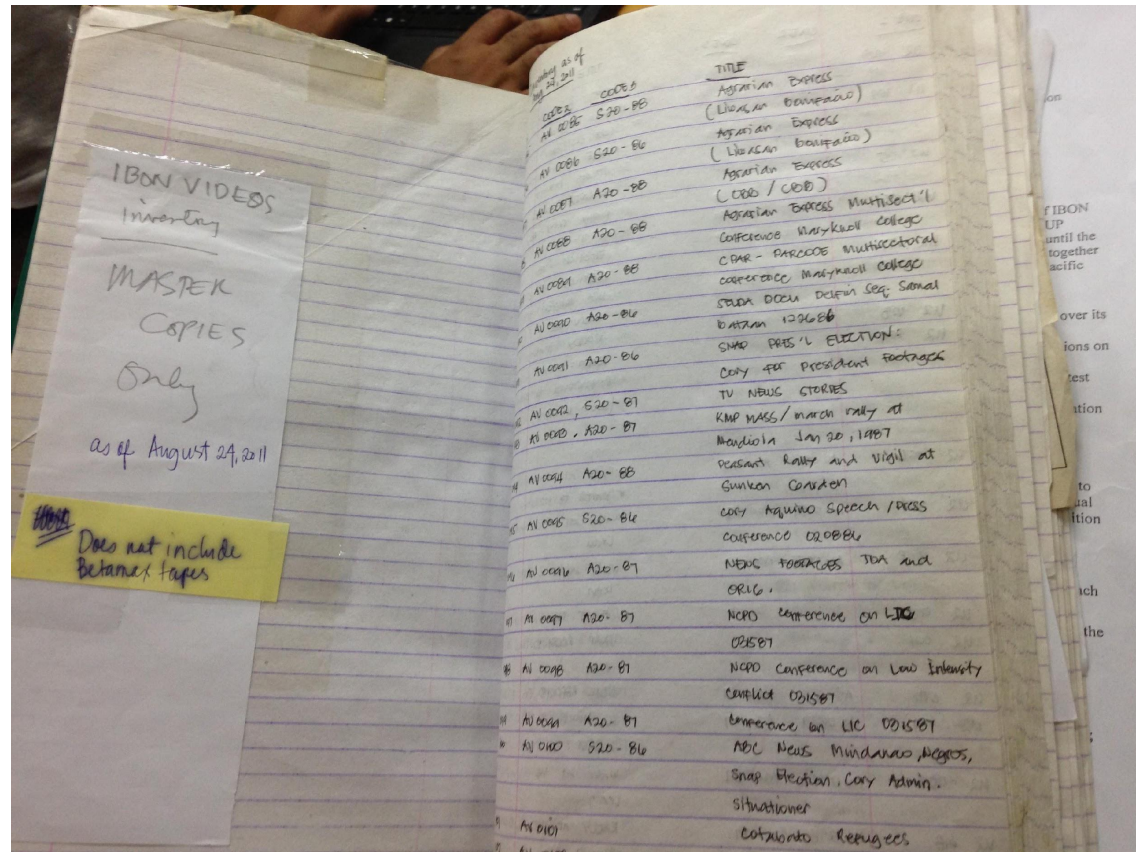 IBON VIDEOS
inventory
MASTER
COPIES
Only
as of August 24, 2011
Does not include
Betamax tapes
Inventory as of
Aug 24, 2011
CODE 2 CODE 3 TITLE
AV 0085 S20-88 Agrarian Express
(Liwasan Bonifacio)
AV 0086 S20-86 Agrarian Express
(Liwasan Bonifacio)
AV 0087 A20-88 Agrarian Express
AV 0088 A20-88 Agrarian Express Multisect'l
Conference Maryknoll College
AV 0089 A20-88 CPAR - PARCODE Multisectoral
conference Maryknoll College
AV 0090 A20-86 DOCU Delfin Seq. Samal
Bataan 122686
AV 0091 A20-86 SNAP PRES'L ELECTION:
Cory for President Footages
AV 0092, S20-87 TV NEWS STORIES
AV 0093. A20-87 KMP MASS/march rally at
Mendiola Jan 20, 1987
AV 0094 A20-88 Peasant Rally and Vigil at
Sunken Garden
AV 0095 S20-86 Cory Aquino Speech / Press
conference 020886
AV 0096 A20-87 NEWS FOOTAGES TDA and
ORIG.
AV 0097 A20-87 NCPD Conference on LIC
031587
98 AV 0098 A20-87 NCPD Conference on Low Intensity
Conflict 031587
AV 0099 A20-87 Conference on LIC 031587
AV 0100 S20-86 ABC News Mindanao, Negros,
Snap Election, Cory Admin.
situationer
AV 0101 Cotabato Refugees
on
f IBON
UP
until the
together
acific
over its
ions on
test
ation
to
ual
ition
ach
the